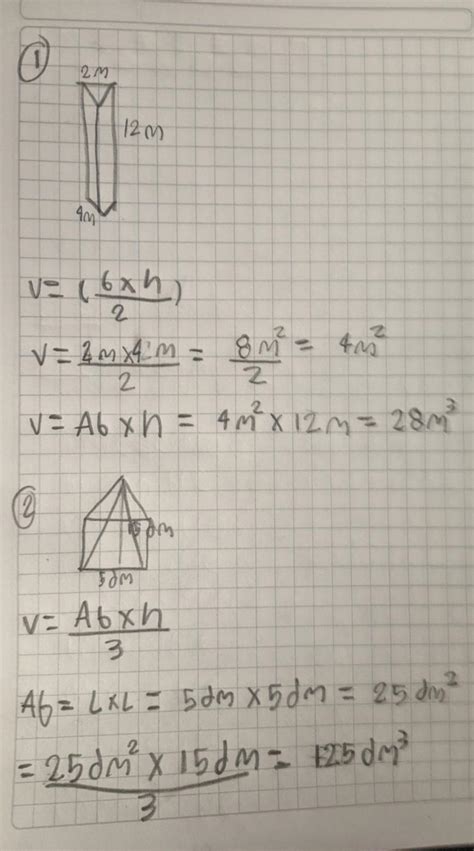 1
2m
12m
4m
V= (6xh/2)
V= 2mx4m/2 = 8m²/2 = 4m²
V= Abxh = 4m²x12m = 28m³
2
15dm
5dm
V= Abxh/3
Ab= LxL = 5dmx5dm = 25dm²
= 25dm²x15dm/3 = 125dm³